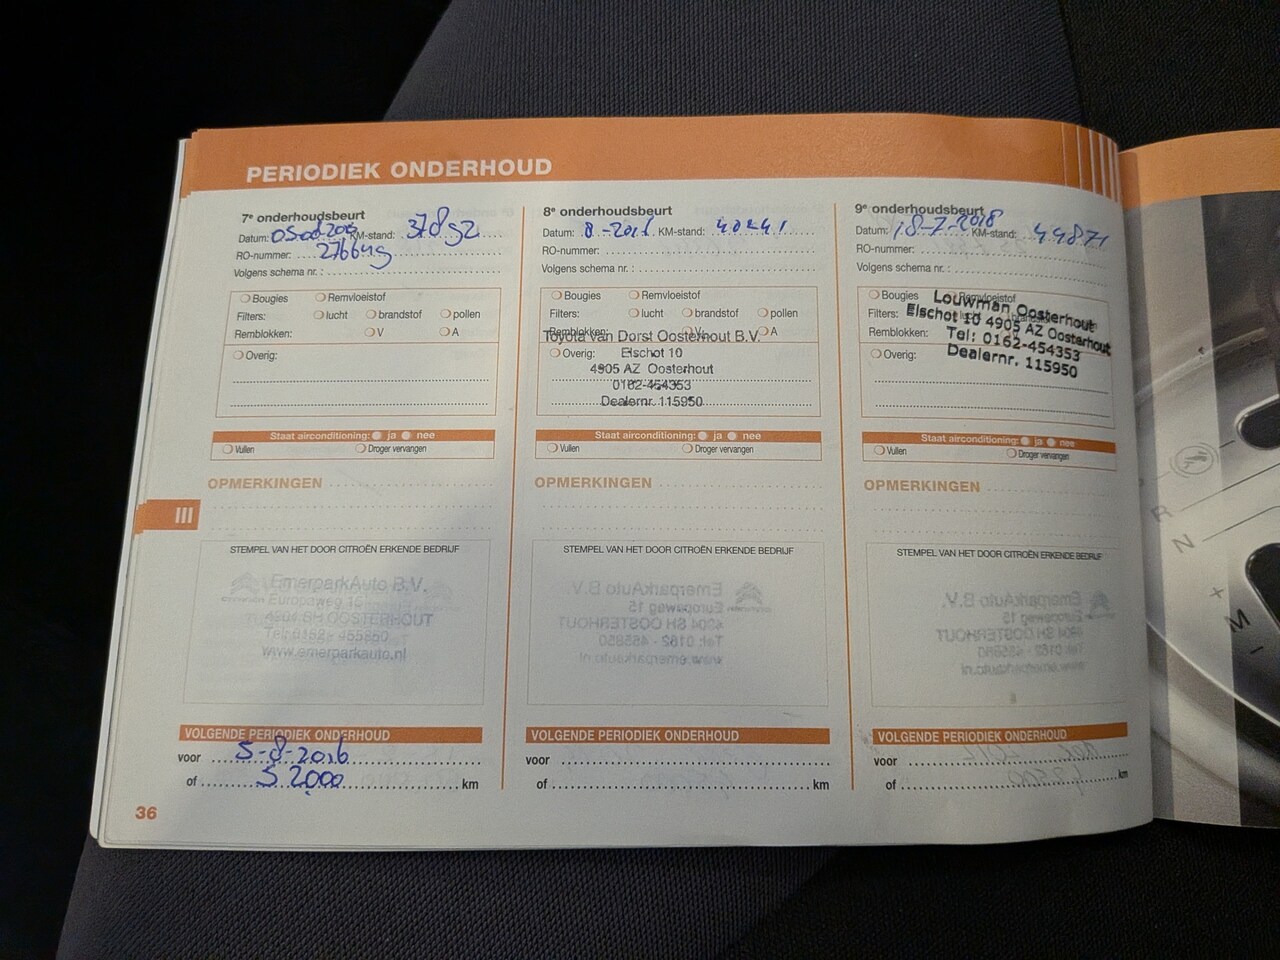 PERIODIEK ONDERHOUD
7e onderhoudsbeurt
Datum: KM-stand:
RO-nummer: 27664g
Volgens schema nr. :
Bougies Remvloeistof
Filters: lucht brandstof pollen
Remblokken: V A
Overig:
Staat airconditioning: ja nee
Vullen Droger vervangen
OPMERKINGEN
STEMPEL VAN HET DOOR CITROËN ERKENDE BEDRIJF
EmerparkAuto B.V.
Europaweg 15
4904 SH OOSTERHOUT
Tel: 0162 - 455850
www.emerparkauto.nl
VOLGENDE PERIODIEK ONDERHOUD
voor 5-8-2016
of 52000 km
8e onderhoudsbeurt
Datum: 8-2016 KM-stand: 40241
RO-nummer:
Volgens schema nr. :
Bougies Remvloeistof
Filters: lucht brandstof pollen
Remblokken: V A
Toyota Van Dorst Oosterhout B.V.
Overig: Elschot 10
4905 AZ Oosterhout
0162-454353
Dealernr. 115950
Staat airconditioning: ja nee
Vullen Droger vervangen
OPMERKINGEN
STEMPEL VAN HET DOOR CITROËN ERKENDE BEDRIJF
VOLGENDE PERIODIEK ONDERHOUD
voor
of km
9e onderhoudsbeurt
Datum: 18-7-2018 KM-stand: 44871
RO-nummer:
Volgens schema nr. :
Bougies Remvloeistof
Filters: lucht
Remblokken:
Louwman Oosterhout
Elschot 10 4905 AZ Oosterhout
Tel: 0162-454353
Dealernr. 115950
Overig:
Staat airconditioning: ja nee
Vullen Droger vervangen
OPMERKINGEN
STEMPEL VAN HET DOOR CITROËN ERKENDE BEDRIJF
VOLGENDE PERIODIEK ONDERHOUD
voor
of km
III
36
R
N
+
M
-